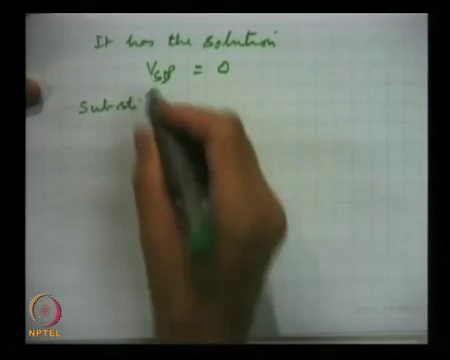 It has the solution
V_SDP = 0
Substi
NPTEL